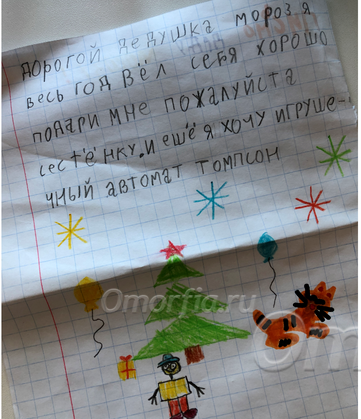 дорогой дедушка мороз.я
весь год вёл себя хорошо
подари мне пожалуйста
сестёнку.и ешё я хочу игруше-
чный автомат томпсон
Omorfia.ru
Om